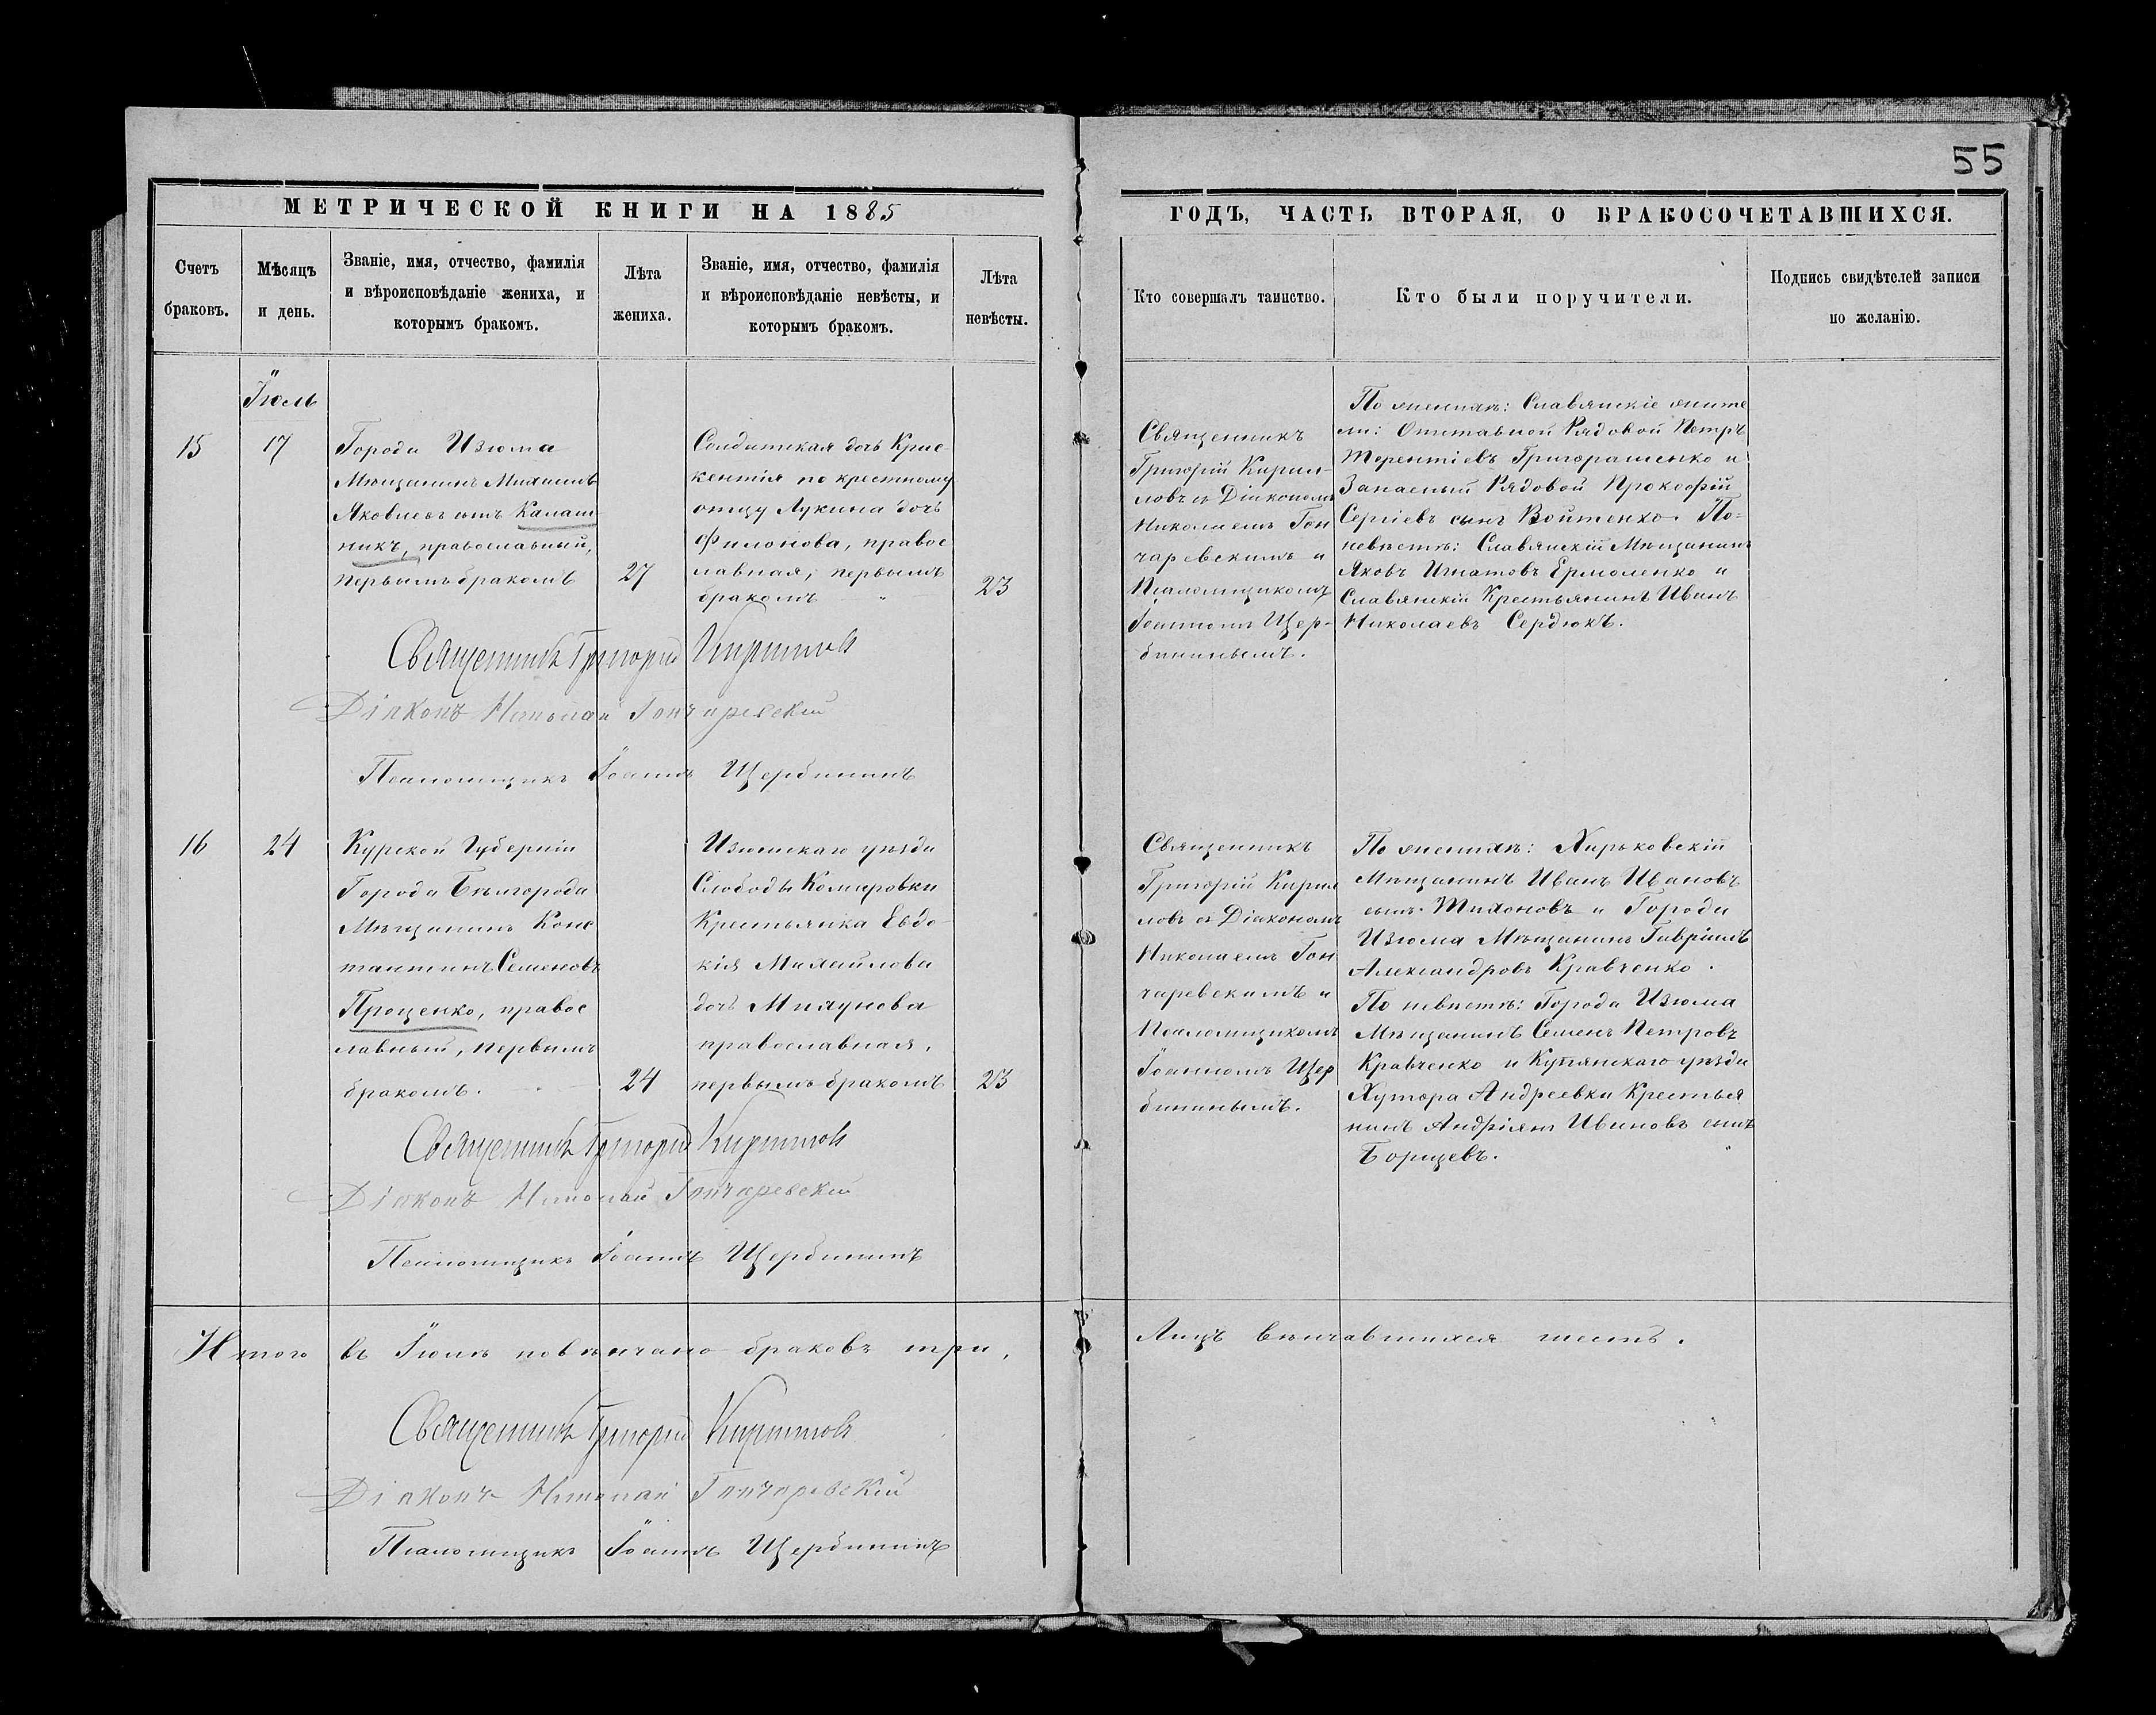 55
МЕТРИЧЕСКОЙ КНИГИ НА 1885
ГОДЪ, ЧАСТЬ ВТОРАЯ, О БРАКОСОЧЕТАВШИХСЯ.
Счетъ
браковъ.
Мѣсяцъ
и день.
Званіе, имя, отчество, фамилія
и вѣроисповѣданіе жениха, и
которымъ бракомъ.
Лѣта
жениха.
Званіе, имя, отчество, фамилія
и вѣроисповѣданіе невѣсты, и
которымъ бракомъ.
Лѣта
невѣсты.
Кто совершалъ таинство.
Кто были поручители.
Подпись свидѣтелей записи
по желанію.
Іюль
15
17
Города Изюма
Мѣщанинъ Михаилъ
Яковлевъ сынъ Калаш-
никъ, православный,
первымъ бракомъ
27
Солдатская дочь Крис-
кентія по крестному
отцу Лукина дочь
Филонова, правос
лавная, первымъ
бракомъ
23
Священникъ
Григорій Кирил-
ловъ съ Діакономъ
Николаемъ Гон
чаревскимъ и
Псаломщикомъ
Іоанномъ Щер-
бининымъ.
По женихѣ: Славянскіе жите
ли: Отставной Рядовой Петръ
Терентіевъ Григорашенко и
Запасный Рядовой Прокофій
Сергіевъ сынъ Войтенко. По-
невѣстѣ: Славянскій Мѣщанинъ
Яковъ Игнатовъ Ермоленко и
Славянскій Крестьянинъ Иванъ
Николаевъ Сердюкъ.
Священникъ Григорій Кирилловъ
Діаконъ Николай Гончаревскій
Псаломщикъ Іоаннъ Щербининъ
16
24
Курской Губерніи
Города Бѣлгорода
Мѣщанинъ Конс
тантинъ Семеновъ
Проценко, правос
лавный, первымъ
бракомъ.
24
Изюмскаго уѣзда
Слободы Комаровки
Крестьянка Евдо-
кія Михайлова
дочь Михунова
православная,
первымъ бракомъ
23
Священникъ
Григорій Кирил
ловъ съ Діакономъ
Николаемъ Гон
чаревскимъ и
Псаломщикомъ
Іоанномъ Щер
бининымъ.
По женихѣ: Харьковскій
Мѣщанинъ Иванъ Ивановъ
сынъ Тихоновъ и Города
Изюма Мѣщанинъ Гавріилъ
Александровъ Кравченко.
По невѣстѣ: Города Изюма
Мѣщанинъ Семенъ Петровъ
Кравченко и Купянскаго уѣзда
Хутора Андреевки Крестья
нинъ Андріянъ Ивановъ сынъ
Борщевъ.
Священникъ Григорій Кирилловъ
Діаконъ Николай Гончаревскій
Псаломщикъ Іоаннъ Щербининъ
Итого въ Іюлѣ повѣнчано браковъ три,
Лицъ вѣнчавшихся шесть.
Священникъ Григорій Кирилловъ
Діаконъ Николай Гончаревскій
Псаломщикъ Іоаннъ Щербининъ